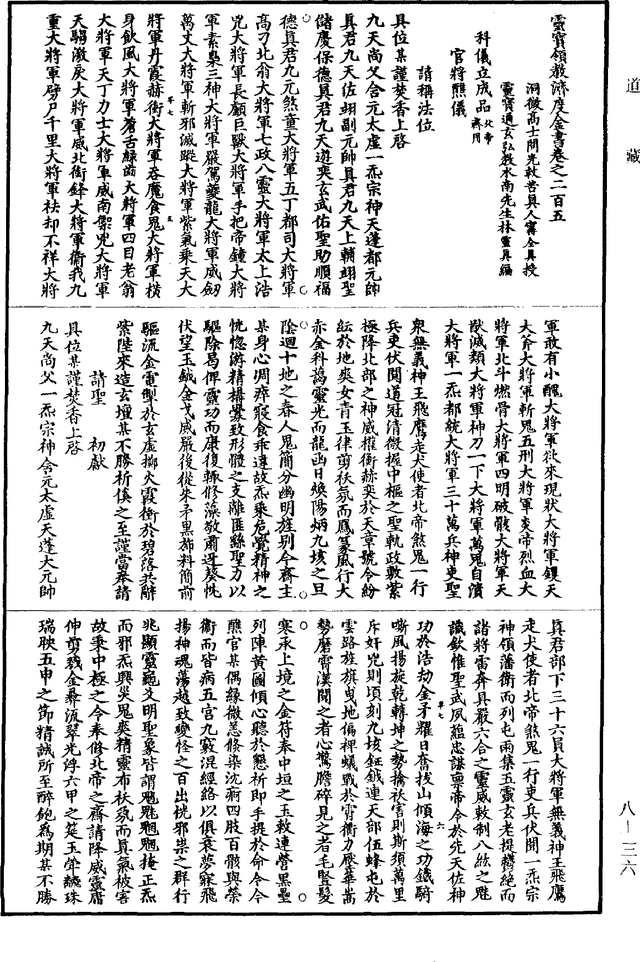 道藏
靈寶領教濟度金書卷之二百五
洞微高士開光救苦真人甯全真授
靈寶通玄弘教水南先生林靈真編
科儀立成品 北帝齋用
官將醮儀
請稱法位
具位某謹焚香上啓
九天尚父含元太虛一炁宗神天蓬都元帥
真君九天佐翊副元帥真君九天上輔翊聖
儲慶保德真君九天遊奕玄武佑聖助順福
德真君九元煞童大將軍五丁都司大將軍
高刁北翁大將軍七政八靈大將軍太上浩
兇大將軍長顱巨獸大將軍手把帝鐘大將
軍素梟三神大將軍嚴駕夔龍大將軍威劒
萬丈大將軍斬邪滅蹤大將軍紫氣乘天大
將軍丹霞赫衝大將軍吞魔食鬼大將軍橫
身飲風大將軍蒼舌綠齒大將軍四目老翁
大將軍天丁力士大將軍威南禦兇大將軍
天騶激戾大將軍威北銜鋒大將軍衛我九
重大將軍劈尸千里大將軍祛却不祥大將
軍敢有小醜大將軍欲來現狀大將軍钁天
大斧大將軍斬鬼五刑大將軍炎帝烈血大
將軍北斗燃骨大將軍四明破骸大將軍天
猷滅類大將軍神刀一下大將軍萬鬼自潰
大將軍一炁都統大將軍三十萬兵神吏聖
衆無義神王飛鷹走犬使者北帝煞鬼一行
兵吏伏聞道冠清微握中樞之聖軌政敷紫
極降北部之神威權衡赫奕於天章號令紛
紜於地奭女青玉律剪祅氛而鳳篆風行大
赤金科蕩靈光而龍函日煥陽炳九垓之旦
陰迴十地之春人鬼簡分幽明旌別今齋主
某身心凋瘁寢食乖違故炁乘危覺精神之
恍惚游精構釁致形體之支離匪繇聖力以
驅除曷俾靈功而康復輒修藻敬肅迓葵忱
伏望玉鉞金戈威嚴後從朱矛黑旆料簡前
驅流金電掣於玄虛擲火霞衝於碧落共辭
紫陛來造玄壇某不勝祈傒之至謹當奉請
請聖 初獻
具位某謹焚香上啓
九天尚父一炁宗神含元太虛天蓬大元帥
真君部下三十六員大將軍無義神王飛鷹
走犬使者北帝煞鬼一行吏兵伏聞一炁宗
神領藩衛而列屯兩集五靈玄老提欎絕而
諸將雷奔具嚴六合之靈威敕制八紘之魁
識欽惟聖武夙蘊忠謀稟帝令於先天佐神
功於浩劫金矛耀日奮拔山傾海之功鐵騎
嘶風揚旋乾轉坤之勢擒祅害則斯須萬里
斥奸兇則頃刻九垓鉦鉞連天部伍蜂屯於
雲路旌旗曳地偏裨蟻戰於霄衢力壓華嵩
勢磨霄漢聞之者心驚膽碎見之者毛豎髮
寒承上境之金符奉中垣之玉敕連營黑壘
列陣黃圖傾心聽於懇祈即手提於命令今
醮官某偶緣微恙倏染沈痾四肢百骸與榮
衛而皆病五宮九竅混經絡以俱衰夢寐飛
揚神魂蕩越致變怪之百出恍邪祟之群行
兆顯靈龜爻明聖象皆謂魁魋魍魎掩正炁
而邪炁興災鬼輿精靈布祅氛而真氣被害
故秉中極之令奉修北帝之齋請降威靈庸
伸剪戮金彝流翠光浮六甲之筵玉斝飜珠
瑞映五申之節精誠所至醉飽為期某不勝
八—三六